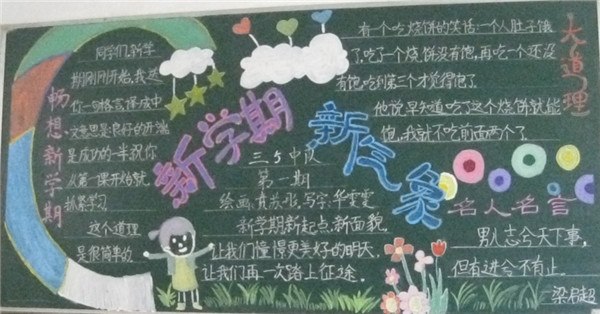 畅想新学期
同学们,新学
期刚刚开始,我送
你一句格言译成中
文意思是良好的开端
是成功的一半祝你
从第一课开始就
抓紧学习
这个道理
是很简单的
新学期
新气象
三、5中队
第一期
新学期新起点,新面貌,
让我们憧憬更美好的明天,
让我们再一次路上征途。
大道理
有一个吃烧饼的笑话:一个人肚子饿
了,吃了一个烧饼没有饱,再吃一个还没
有饱,吃到第三个才觉得饱了
他说早知道吃了这个烧饼就能
饱,我就不吃前面两个了
名人名言
男儿志兮天下事,
但有进兮不有止。
梁启超